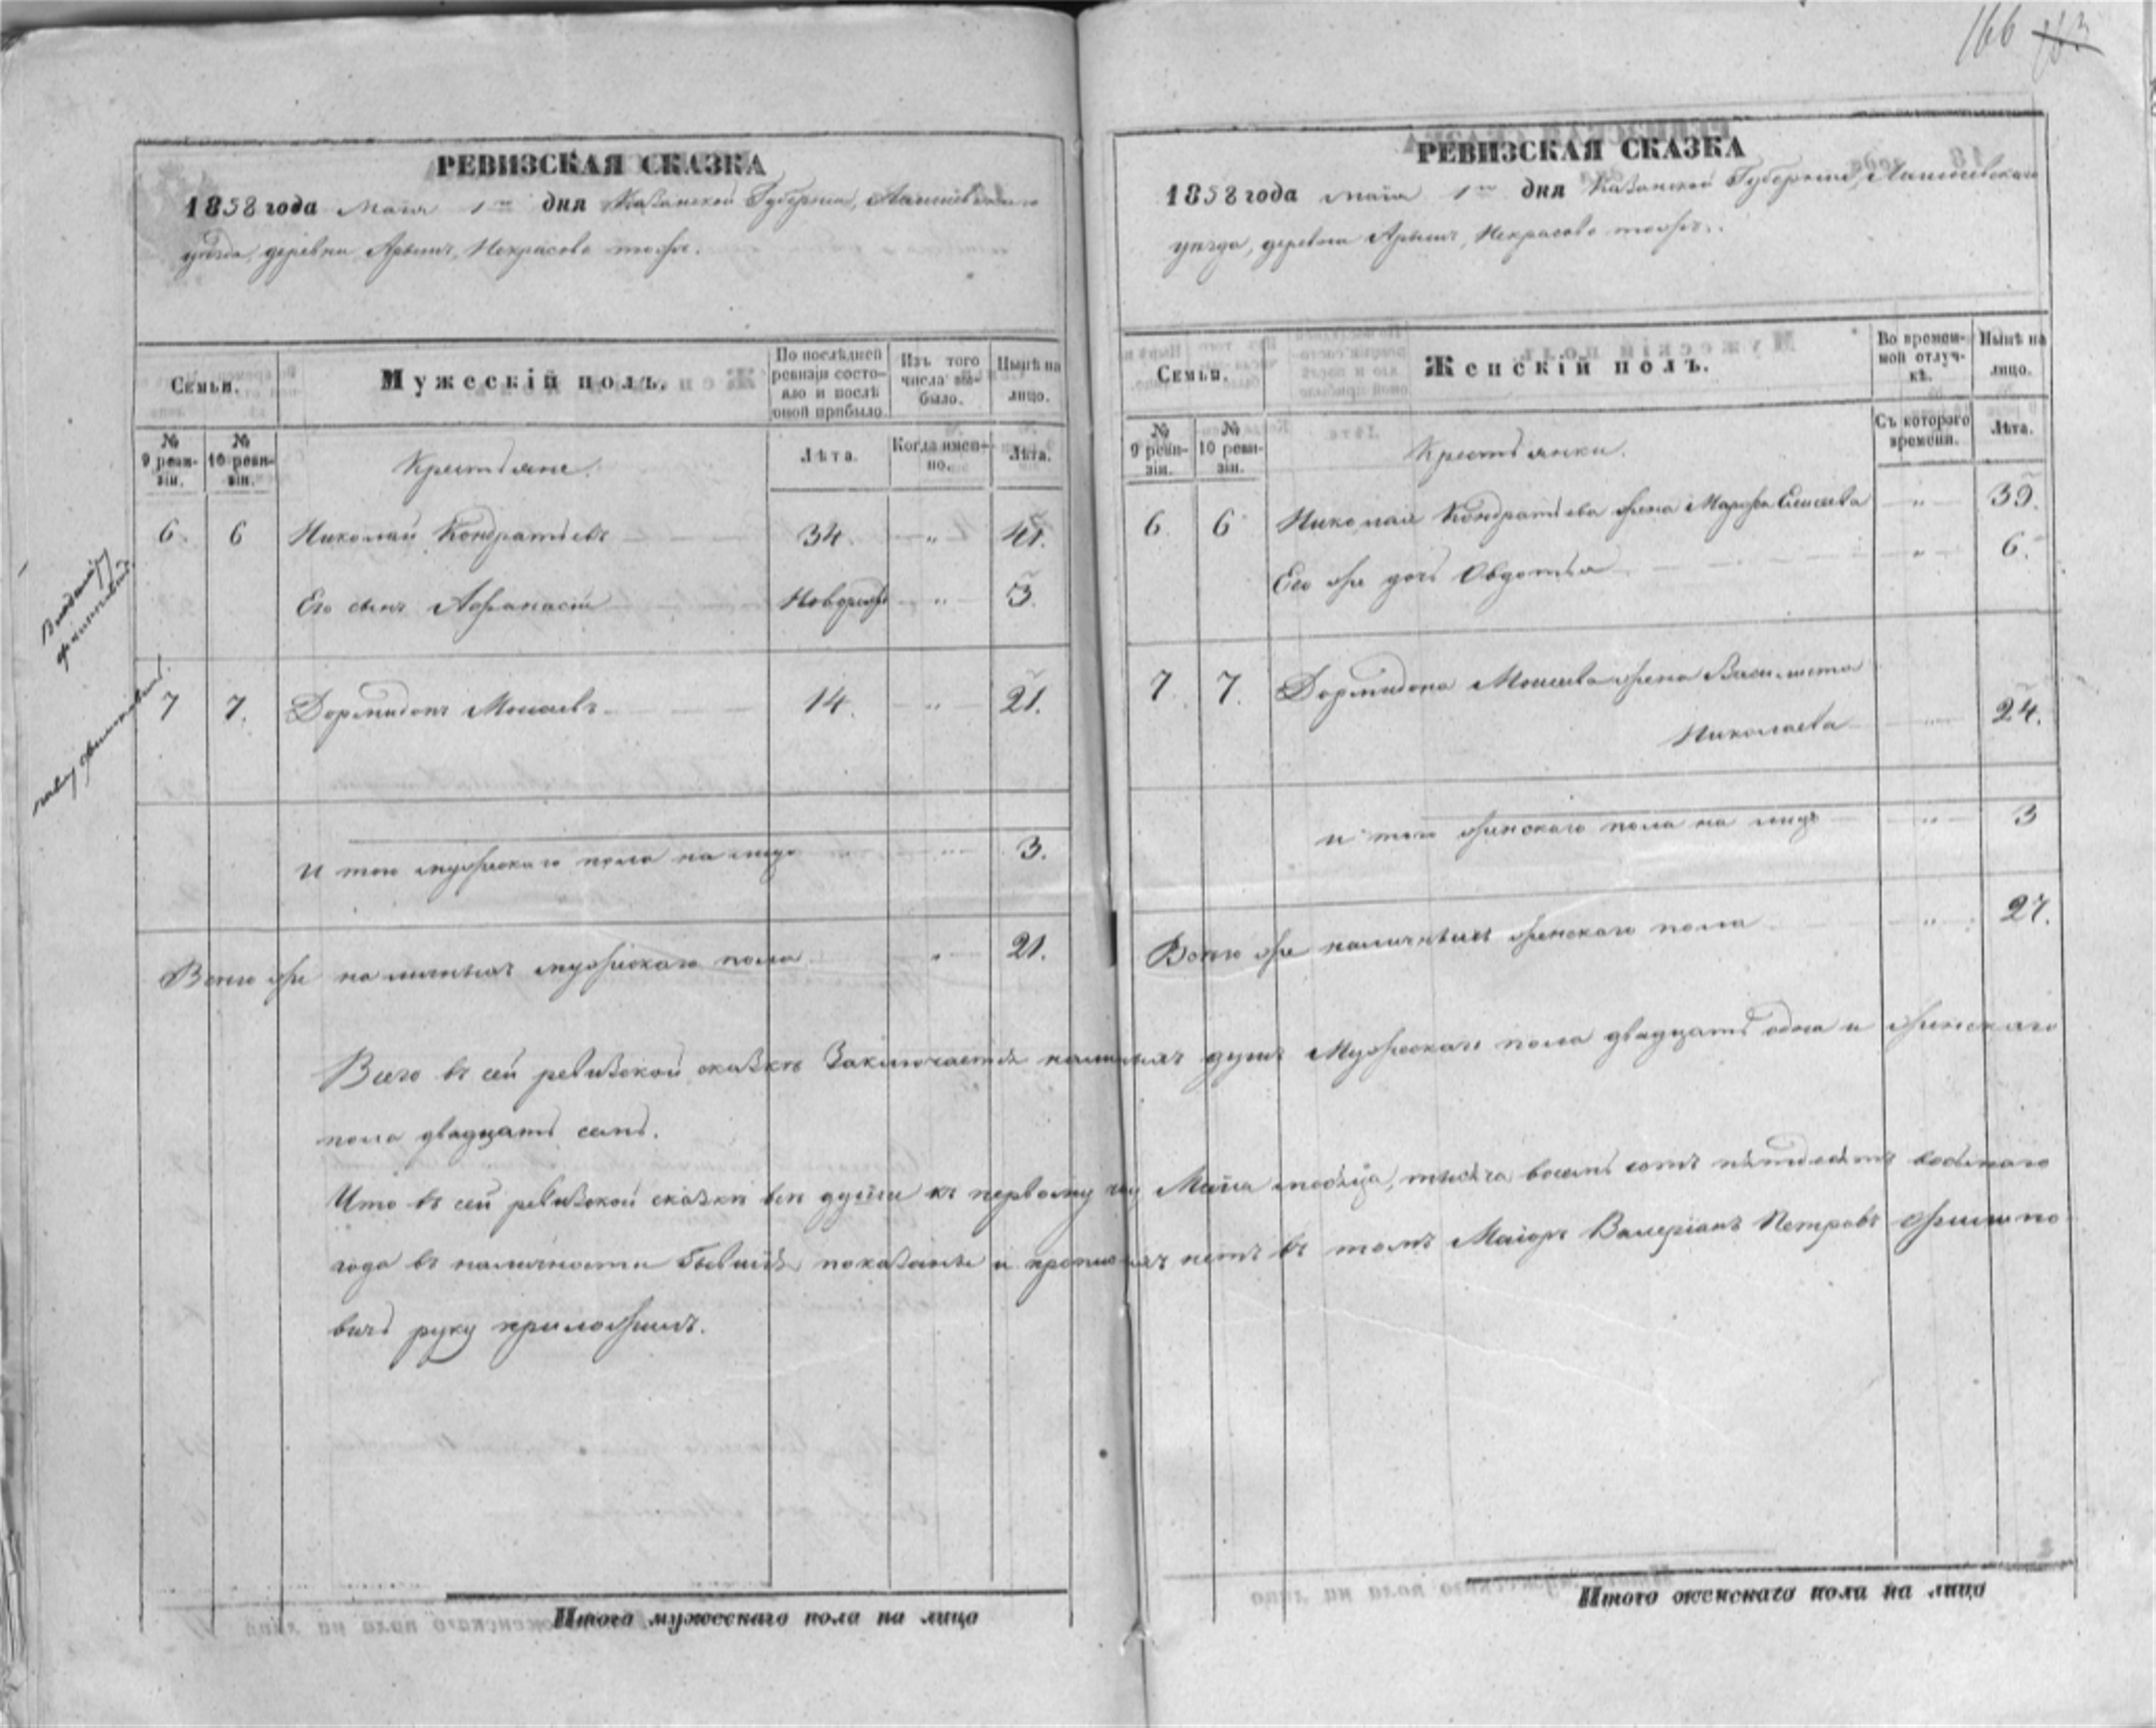 166 183
РЕВИЗСКАЯ СКАЗКА
1858 года Маія 1го дня Казанской Губерніи, Лаишевскаго
уѣзда, деревни Арышъ, Некрасово тожъ.
Семьи. Мужескій полъ. По послѣдней ревизіи состояло и послѣ оной прибыло. Изъ того числа выбыло. Нынѣ на лицо.
№ 9 ревизіи. № 10 ревизіи. Крестьяне. Лѣта. Когда именно. Лѣта.
6. 6 Николай Кондратьевъ 34. „ 41.
Его сынъ Афанасій Новорожд „ 5.
7 7. Дормидонъ Моисеевъ 14. „ 21.
И того мужескаго пола на лицо „ „ 3.
Всего же наличныхъ мужескаго пола „ 21.
РЕВИЗСКАЯ СКАЗКА
1858 года маія 1го дня Казанской Губерніи, Лаишевскаго
уѣзда, деревни Арышъ, Некрасово тожъ.
Семьи. Женскій полъ. Во временной отлучкѣ. Нынѣ на лицо.
№ 9 ревизіи. № 10 ревизіи. Крестьянки. Съ котораго времени. Лѣта.
6 6 Николая Кондратьева жена Марфа Елисеева „ 39.
Его же дочь Овдотья „ 6.
7. 7. Дормидона Моисеева жена Василиста
Николаева „ 24.
И того женскаго пола на лицо „ 3
Всего же наличныхъ женскаго пола „ 27.
Всего въ сей ревизской сказкѣ заключается наличныхъ душъ Мужескаго пола двадцать одна и женскаго
пола двадцать семь.
Что въ сей ревизской сказкѣ всѣ души къ первому Маія месяца, тысяча восемь сотъ пятьдесятъ восьмаго
года въ наличности бывшія показаны и прописныхъ нетъ въ томъ Маіоръ Валеріанъ Петровъ
вичь руку приложилъ.
Итого мужескаго пола на лицо
Итого женскаго пола на лицо